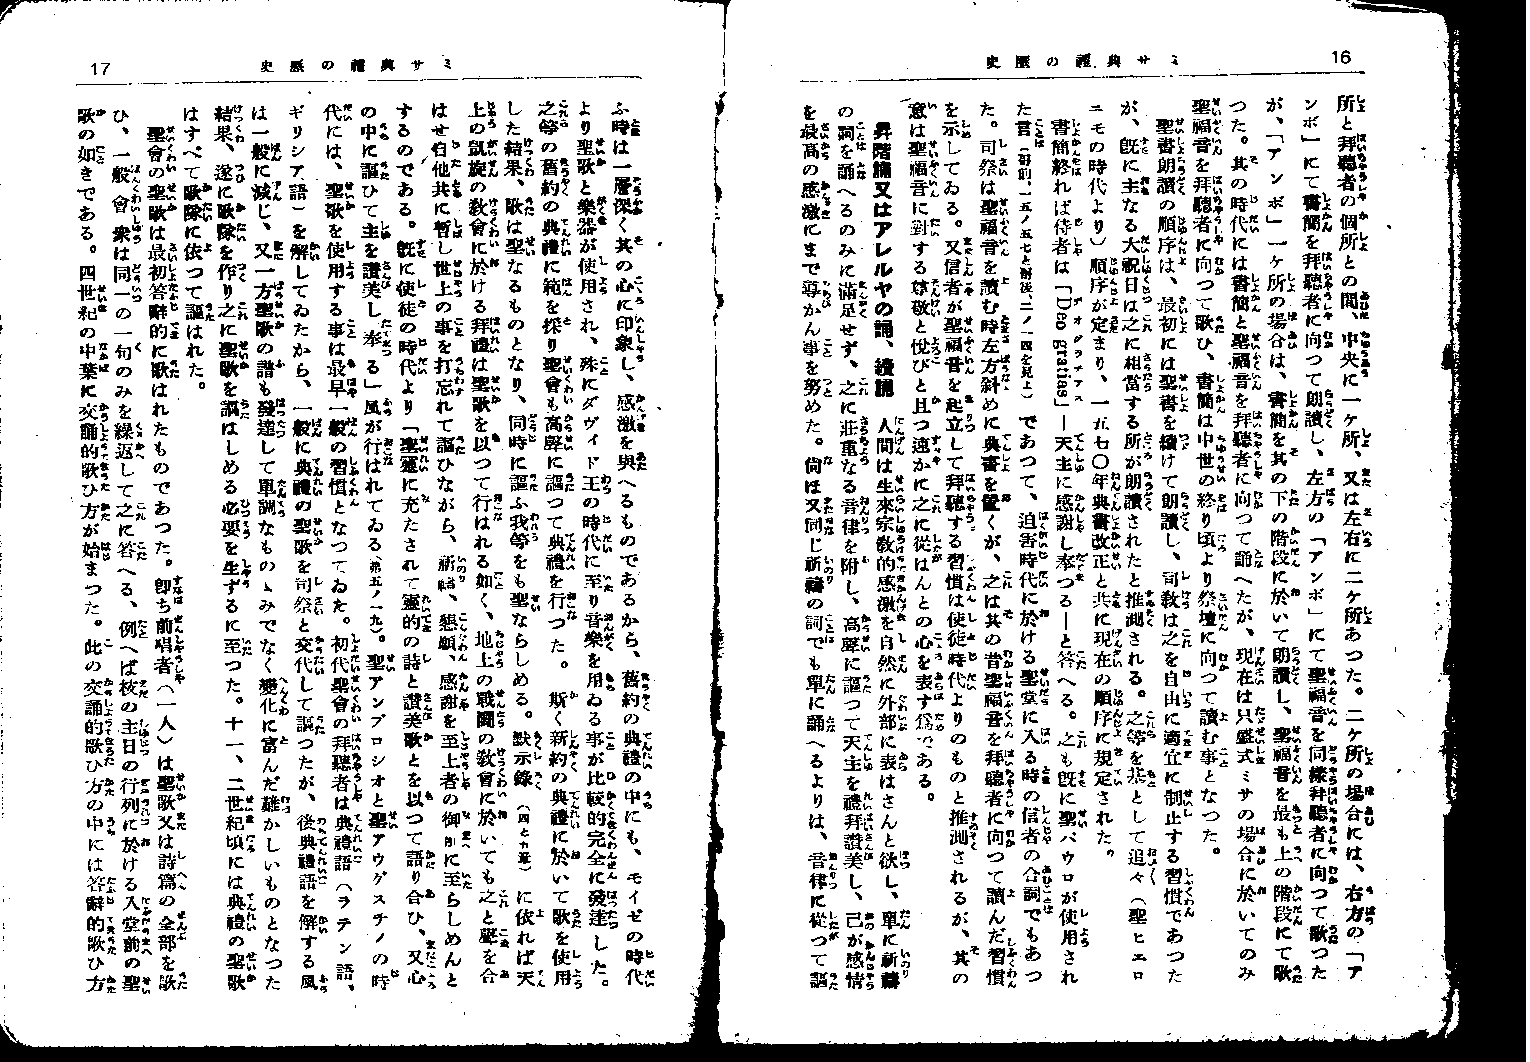 16
ミサ典禮の歴史
所と拜聽者の個所との間、中央に一ケ所、又は左右に二ケ所あつた。二ケ所の場合には、右方の「ア
ンボ」にて書簡を拜聽者に向つて朗讀し、左方の「アンボ」にて聖福音を同樣拜聽者に向つて歌つた
が、「アンボ」一ケ所の場合は、書簡を其の下の階段に於いて朗讀し、聖福音を最も上の階段にて歌
つた。其の時代には書簡と聖福音を拜聽者に向つて誦へたが、現在は只盛式ミサの場合に於いてのみ
聖福音を拜聽者に向つて歌ひ、書簡は中世の終り頃より祭壇に向つて讀む事となつた。
聖書朗讀の順序は、最初には聖書を續けて朗讀し、司敎は之を自由に適宜に制止する習慣であつた
が、既に主なる大祝日は之に相當する所が朗讀されたと推測される。之等を基として追々（聖ヒエロ
ニモの時代より）順序が定まり、一五七〇年典書改正と共に現在の順序に規定された。
書簡終れば侍者は「Deo gratias」―天主に感謝し奉つる―と答へる。之も既に聖パウロが使用され
た言（前、一五ノ五七と後、二ノ一四を見よ）であつて、迫害時代に於ける聖堂に入る時の信者の合詞でもあつ
た。司祭は聖福音を讀む時左方斜めに典書を置くが、之は其の昔聖福音を拜聽者に向つて讀んだ習慣
を示してゐる。又信者が聖福音を起立して拜聽する習慣は使徒時代よりのものと推測されるが、其の
意は聖福音に對する尊敬と悅びと且つ速かに之に從はんとの心を表す爲である。
昇階誦又はアレルヤの誦、續誦　人間は生來宗敎的感激を自然に外部に表はさんと欲し、單に祈禱
の詞を誦へるのみに滿足せず、之に莊重なる音律を附し、高聲に謳つて天主を禮拜讚美し、己が感情
を最高の感激にまで導かん事を努めた。尙ほ又同じ祈禱の詞でも單に誦へるよりは、音律に從つて謳
17
ミサ典禮の歴史
ふ時は一層深く其の心に印象し、感激を與へるものであるから、舊約の典禮の中にも、モイゼの時代
より聖歌と樂器が使用され、殊にダヴィド王の時代に至り音樂を用ゐる事が比較的完全に發達した。
之等の舊約の典禮に範を採り聖會も高聲に謳つて典禮を行つた。斯く新約の典禮に於いて歌を使用
した結果、歌は聖なるものとなり、同時に謳ふ我等をも聖ならしめる。默示錄（四と七章）に依れば天
上の凱旋の敎會に於ける拜禮は聖歌を以つて行はれる如く、地上の戰鬪の敎會に於いても之と聲を合
はせ自他共に暫し世上の事を打忘れて謳ひながら、祈禱、懇願、感謝を至上者の御前に至らしめんと
するのである。既に使徒の時代より「聖靈に充たされて靈的の詩と讚美歌とを以つて語り合ひ、又心
の中に謳ひて主を讚美し奉る」風が行はれてゐる（弗五ノ一九）。聖アンブロシオと聖アウグスチノの時
代には、聖歌を使用する事は最早一般の習慣となつてゐた。初代聖會の拜聽者は典禮語（ラテン語、
ギリシア語）を解してゐたから、一般に典禮の聖歌を司祭と交代して謳つたが、後典禮語を解する風
は一般に減じ、又一方聖歌の譜も發達して單調なものゝみでなく變化に富んだ難かしいものとなつた
結果、遂に歌隊を作り之に聖歌を謳はしめる必要を生ずるに至つた。十一、二世紀頃には典禮の聖歌
はすべて歌隊に依つて謳はれた。
聖會の聖歌は最初答辭的に歌はれたものであつた。卽ち前唱者（一人）は聖歌又は詩篇の全部を歌
ひ、一般會衆は同一の一句のみを繰返して之に答へる、例へば枝の主日の行列に於ける入堂前の聖
歌の如きである。四世紀の中葉に交誦的歌ひ方が始まつた。此の交誦的歌ひ方の中には答辭的歌ひ方